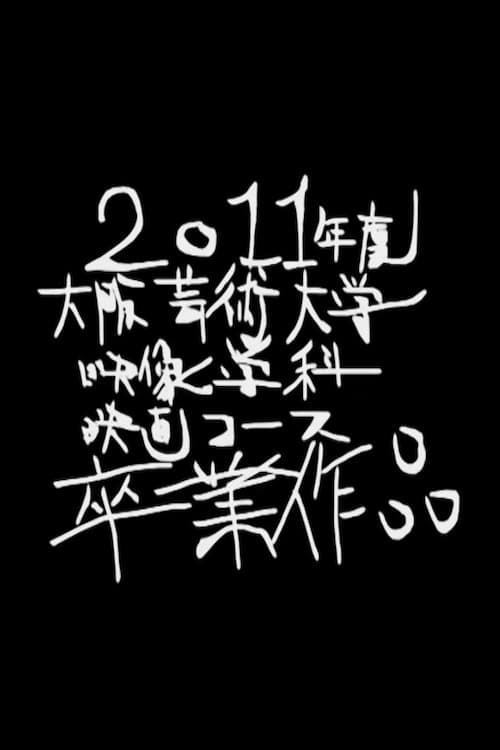 2011年度
大阪芸術大学
映像学科
映画コース
卒業作品